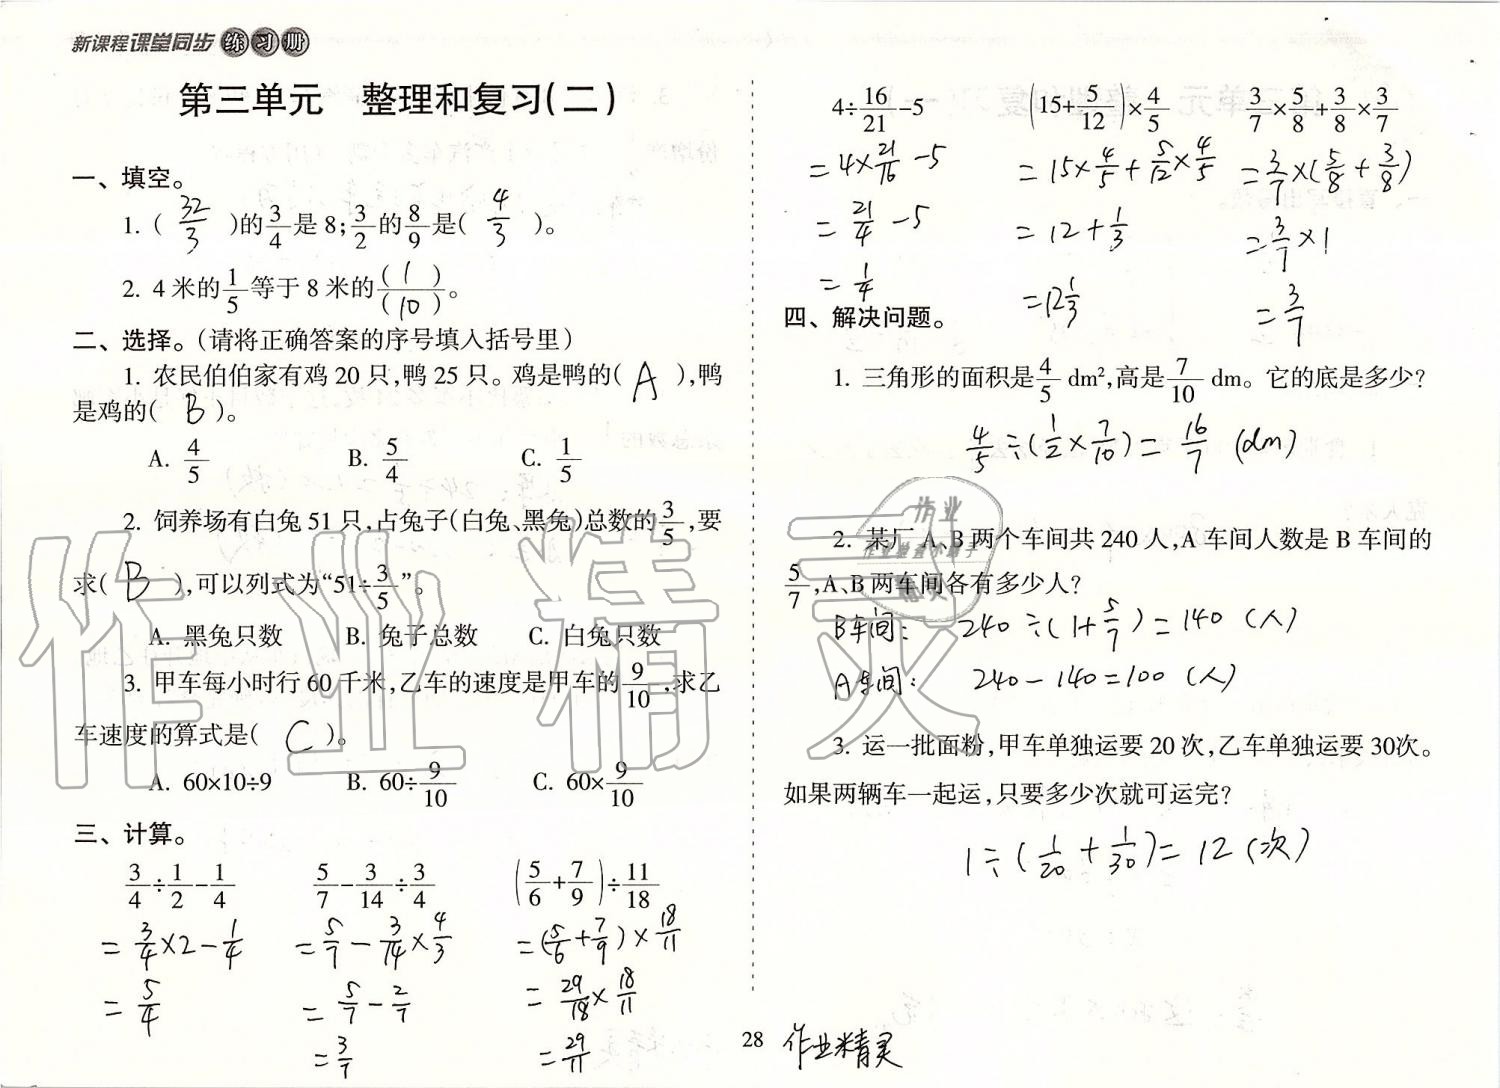 新课程课堂同步练习册
第三单元 整理和复习(二)
一、填空。
1. ( 32/3 )的3/4是8;3/2的8/9是( 4/3 )。
2. 4米的1/5等于8米的(1)/(10)。
二、选择。(请将正确答案的序号填入括号里)
1. 农民伯伯家有鸡20只,鸭25只。鸡是鸭的( A ),鸭
是鸡的( B )。
A. 4/5 B. 5/4 C. 1/5
2. 饲养场有白兔51只,占兔子(白兔、黑兔)总数的3/5,要
求( B ),可以列式为“51÷3/5”。
A. 黑兔只数 B. 兔子总数 C. 白兔只数
3. 甲车每小时行60千米,乙车的速度是甲车的9/10,求乙
车速度的算式是( C )。
A. 60×10÷9 B. 60÷9/10 C. 60×9/10
三、计算。
3/4÷1/2-1/4 5/7-3/14÷3/4 (5/6+7/9)÷11/18
=3/4×2-1/4 =5/7-3/14×4/3 =(5/6+7/9)×18/11
=5/4 =5/7-2/7 =29/18×18/11
=3/7 =29/11
4÷16/21-5 (15+5/12)×4/5 3/7×5/8+3/8×3/7
=4×21/16-5 =15×4/5+5/12×4/5 =3/7×(5/8+3/8)
=21/4-5 =12+1/3 =3/7×1
=1/4 =12 1/3 =3/7
四、解决问题。
1. 三角形的面积是4/5 dm²,高是7/10 dm。它的底是多少?
4/5÷(1/2×7/10)=16/7 (dm)
2. 某厂A、B两个车间共240人,A车间人数是B车间的
5/7,A、B两车间各有多少人?
B车间: 240÷(1+5/7)=140 (人)
A车间: 240-140=100 (人)
3. 运一批面粉,甲车单独运要20次,乙车单独运要30次。
如果两辆车一起运,只要多少次就可运完?
1÷(1/20+1/30)=12 (次)
28
作业精灵
作业精灵
作业